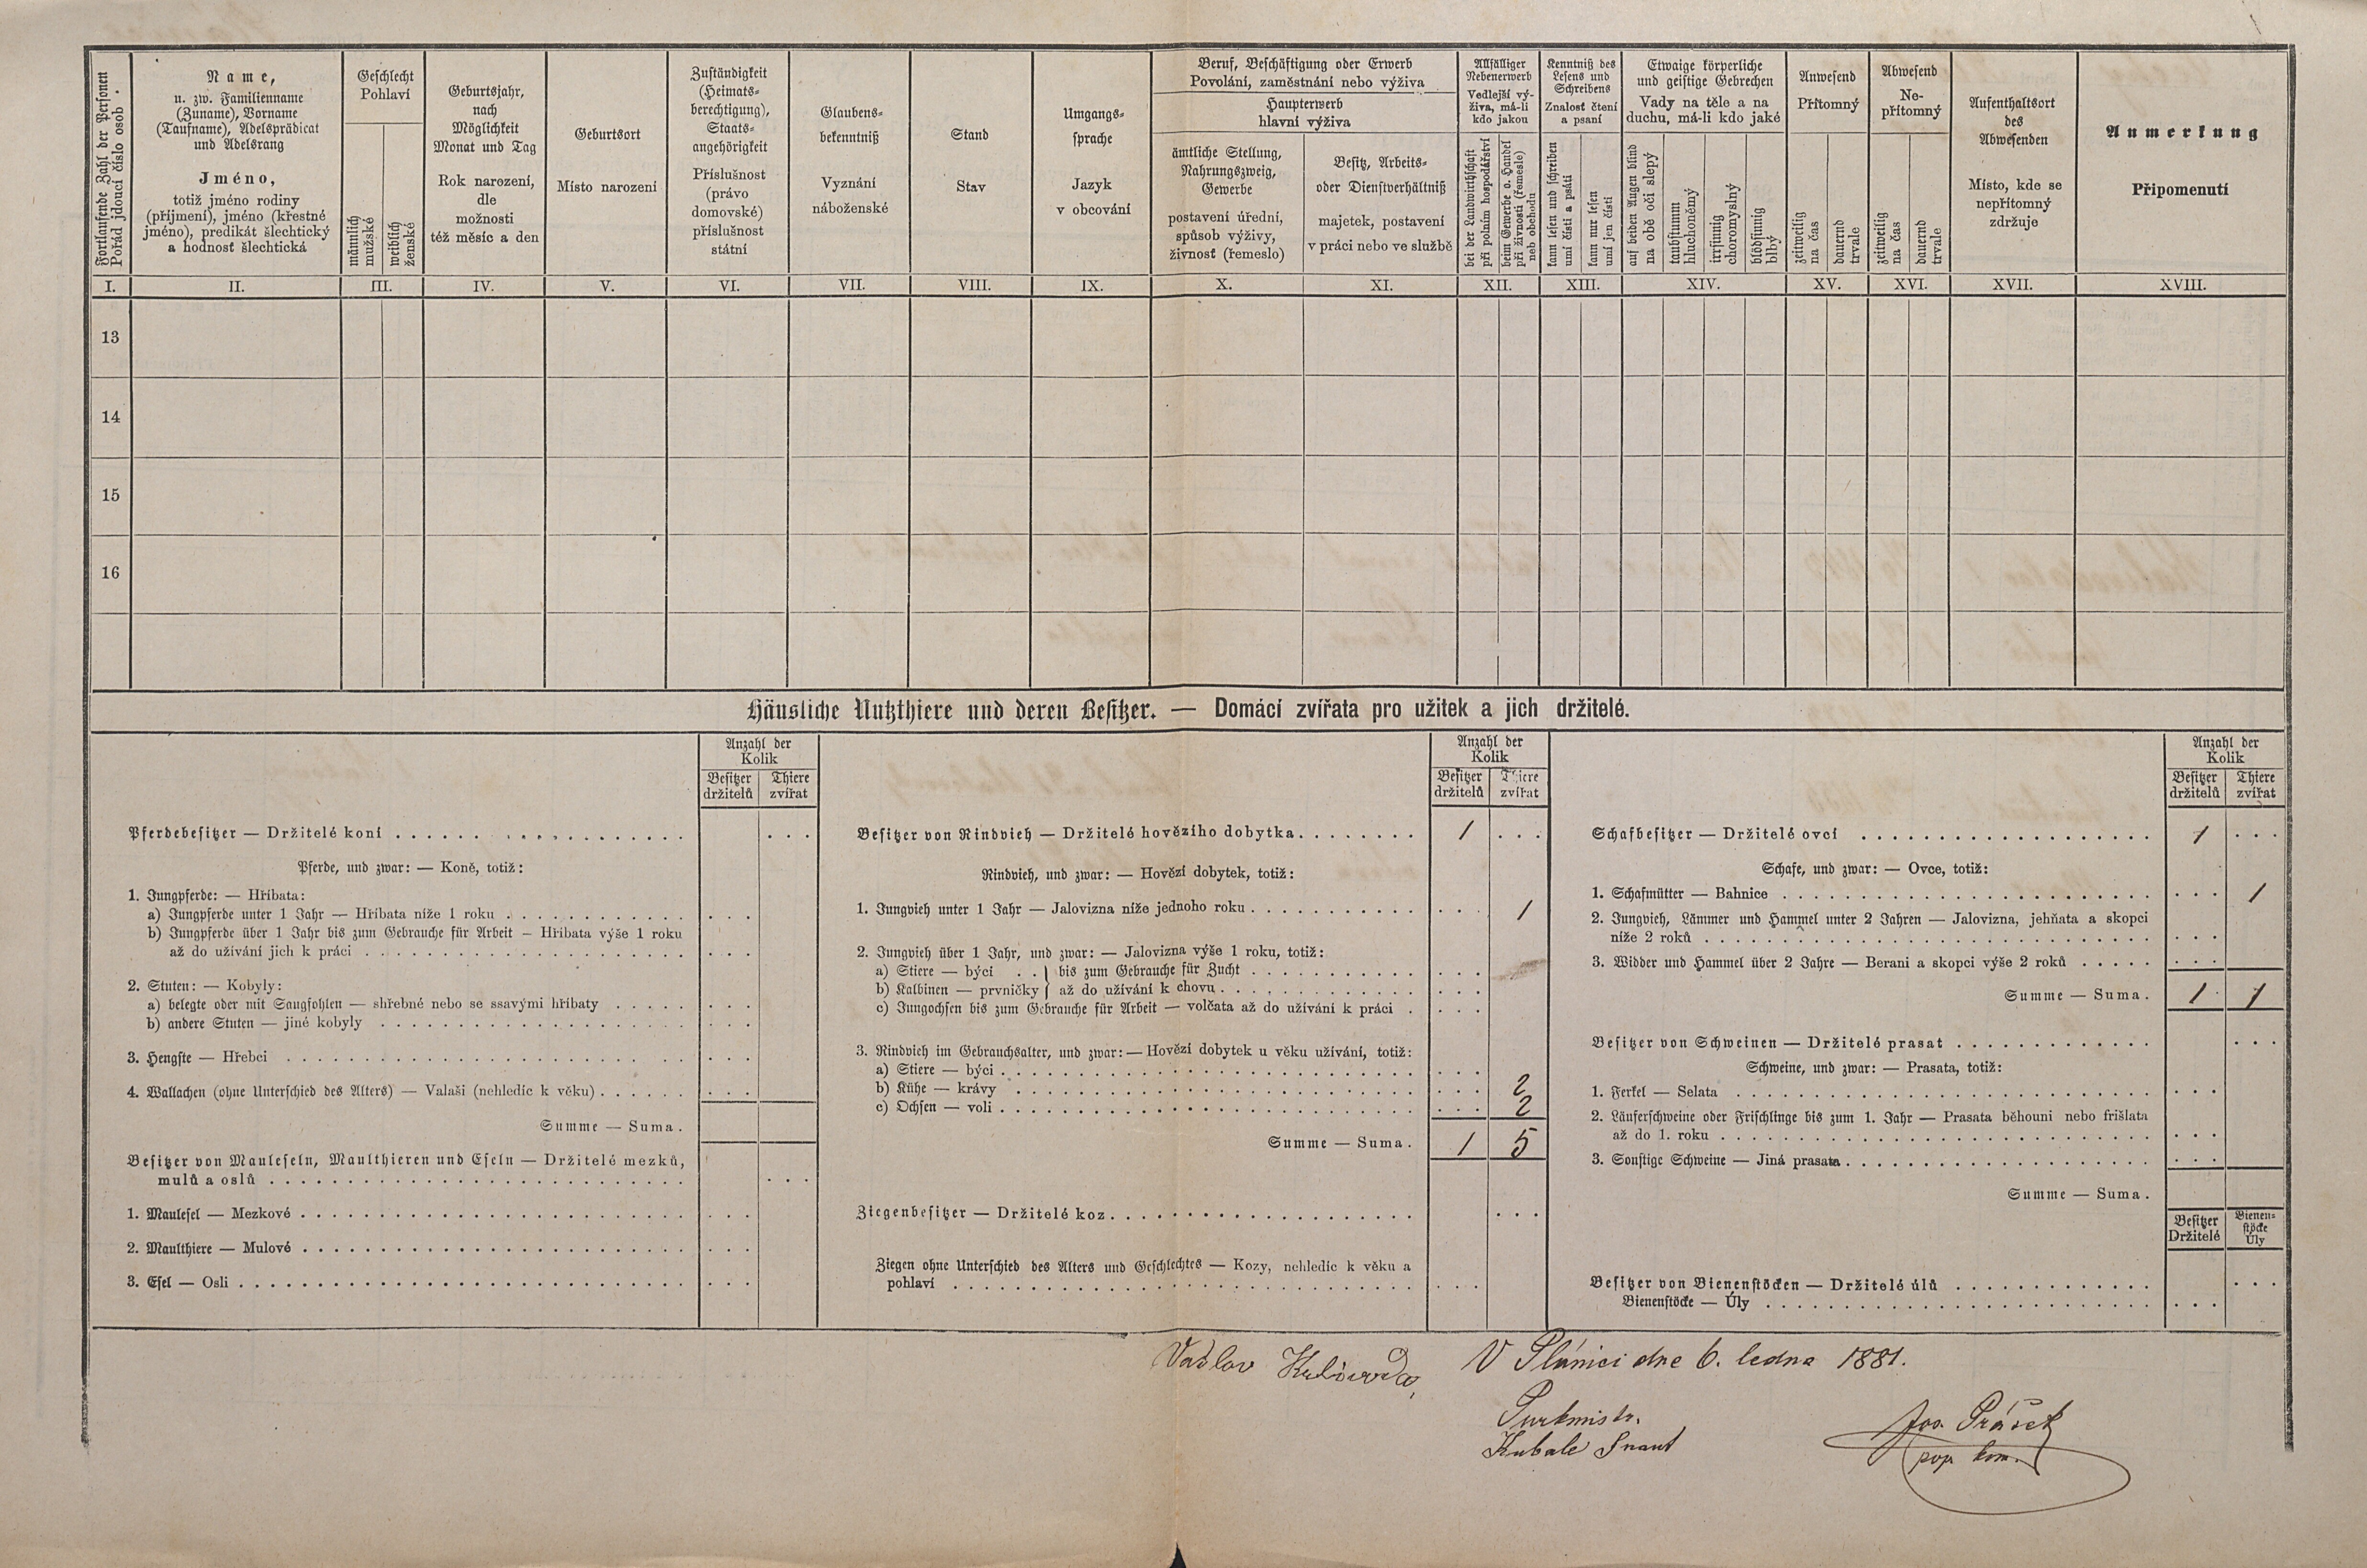 Fortlaufende Zahl der Personen
Pořád jdoucí číslo osob.
Name,
u. zw. Familienname
(Zuname), Vorname
(Taufname), Adelsprädicat
und Adelsrang
Jméno,
totiž jméno rodiny
(příjmení), jméno (křestné
jméno), predikát šlechtický
a hodnosť šlechtická
Geschlecht
Pohlaví
männlich
mužské
weiblich
ženské
Geburtsjahr,
nach
Möglichkeit
Monat und Tag
Rok narození,
dle
možnosti
též měsíc a den
Geburtsort
Místo narození
Zuständigkeit
(Heimats-
berechtigung),
Staats-
angehörigkeit
Příslušnost
(právo
domovské)
příslušnost
státní
Glaubens-
bekenntniß
Vyznání
náboženské
Stand
Stav
Umgangs-
sprache
Jazyk
v obcování
Beruf, Beschäftigung oder Erwerb
Povolání, zaměstnání nebo výživa
Haupterwerb
hlavní výživa
ämtliche Stellung,
Nahrungszweig,
Gewerbe
postavení úřední,
spůsob výživy,
živnosť (řemeslo)
Besitz, Arbeits-
oder Dienstverhältniß
majetek, postavení
v práci nebo ve službě
Allfälliger
Nebenerwerb
Vedlejší vý-
živa, má-li
kdo jakou
bei der Landwirthschaft
při polním hospodářství
beim Gewerbe o. Handel
při živnosti (řemesle)
neb obchodu
Kenntniß des
Lesens und
Schreibens
Znalosť čtení
a psaní
kann lesen und schreiben
umí čísti a psáti
kann nur lesen
umí jen čísti
Etwaige körperliche
und geistige Gebrechen
Vady na těle a na
duchu, má-li kdo jaké
auf beiden Augen blind
na obě oči slepý
taubstumm
hluchoněmý
irrsinnig
choromyslný
blödsinnig
blbý
Anwesend
Přítomný
zeitweilig
na čas
dauernd
trvale
Abwesend
Ne-
přítomný
zeitweilig
na čas
dauernd
trvale
Aufenthaltsort
des
Abwesenden
Místo, kde se
nepřítomný
zdržuje
Anmerkung
Připomenutí
I. II. III. IV. V. VI. VII. VIII. IX. X. XI. XII. XIII. XIV. XV. XVI. XVII. XVIII.
13
14
15
16
Häusliche Nutzthiere und deren Besitzer. — Domácí zvířata pro užitek a jich držitelé.
Anzahl der
Kolik
Besitzer
držitelů
Thiere
zvířat
Pferdebesitzer — Držitelé koní
Pferde, und zwar: — Koně, totiž:
1. Jungpferde: — Hříbata:
a) Jungpferde unter 1 Jahr — Hříbata níže 1 roku
b) Jungpferde über 1 Jahr bis zum Gebrauche für Arbeit — Hříbata výše 1 roku
až do užívání jich k práci
2. Stuten: — Kobyly:
a) belegte oder mit Saugfohlen — shřebné nebo se ssavými hříbaty
b) andere Stuten — jiné kobyly
3. Hengste — Hřebci
4. Wallachen (ohne Unterschied des Alters) — Valaši (nehledíc k věku)
Summe — Suma.
Besitzer von Mauleseln, Maulthieren und Eseln — Držitelé mezků,
mulů a oslů
1. Maulesel — Mezkové
2. Maulthiere — Mulové
3. Esel — Osli
Anzahl der
Kolik
Besitzer
držitelů
Thiere
zvířat
Besitzer von Rindvieh — Držitelé hovězího dobytka 1
Rindvieh, und zwar: — Hovězí dobytek, totiž:
1. Jungvieh unter 1 Jahr — Jalovizna níže jednoho roku 1
2. Jungvieh über 1 Jahr, und zwar: — Jalovizna výše 1 roku, totiž:
a) Stiere — býci } bis zum Gebrauche für Zucht
b) Kalbinen — prvničky } až do užívání k chovu
c) Jungochsen bis zum Gebrauche für Arbeit — volčata až do užívání k práci
3. Rindvieh im Gebrauchsalter, und zwar: — Hovězí dobytek u věku užívání, totiž:
a) Stiere — býci
b) Kühe — krávy 2
c) Ochsen — voli 2
Summe — Suma. 1 5
Ziegenbesitzer — Držitelé koz
Ziegen ohne Unterschied des Alters und Geschlechtes — Kozy, nehledíc k věku a
pohlaví
Anzahl der
Kolik
Besitzer
držitelů
Thiere
zvířat
Schafbesitzer — Držitelé ovcí 1
Schafe, und zwar: — Ovce, totiž:
1. Schafmütter — Bahnice 1
2. Jungvieh, Lämmer und Hammel unter 2 Jahren — Jalovizna, jehňata a skopci
níže 2 roků
3. Widder und Hammel über 2 Jahre — Berani a skopci výše 2 roků
Summe — Suma. 1 1
Besitzer von Schweinen — Držitelé prasat
Schweine, und zwar: — Prasata, totiž:
1. Ferkel — Selata
2. Läuferschweine oder Frischlinge bis zum 1. Jahr — Prasata běhouni nebo frišlata
až do 1. roku
3. Sonstige Schweine — Jiná prasata
Summe — Suma.
Besitzer
Držitelé
Bienen-
stöcke
Úly
Besitzer von Bienenstöcken — Držitelé úlů
Bienenstöcke — Úly
V Plánici dne 6. ledna 1881.
Purkmistr.
Jos. Prášek
pop. kom.